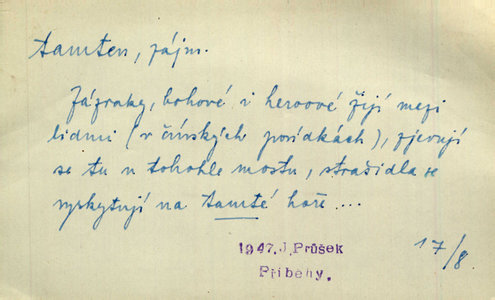 tamten, zájm.
Zázraky, bohové i heroové žijí mezi
lidmi (v čínských povídkách), zjevují
se tu u tohohle mostu, strašidla se
vyskytují na tamté hoře ...
1947. J. Průšek
Příběhy.
17/8.